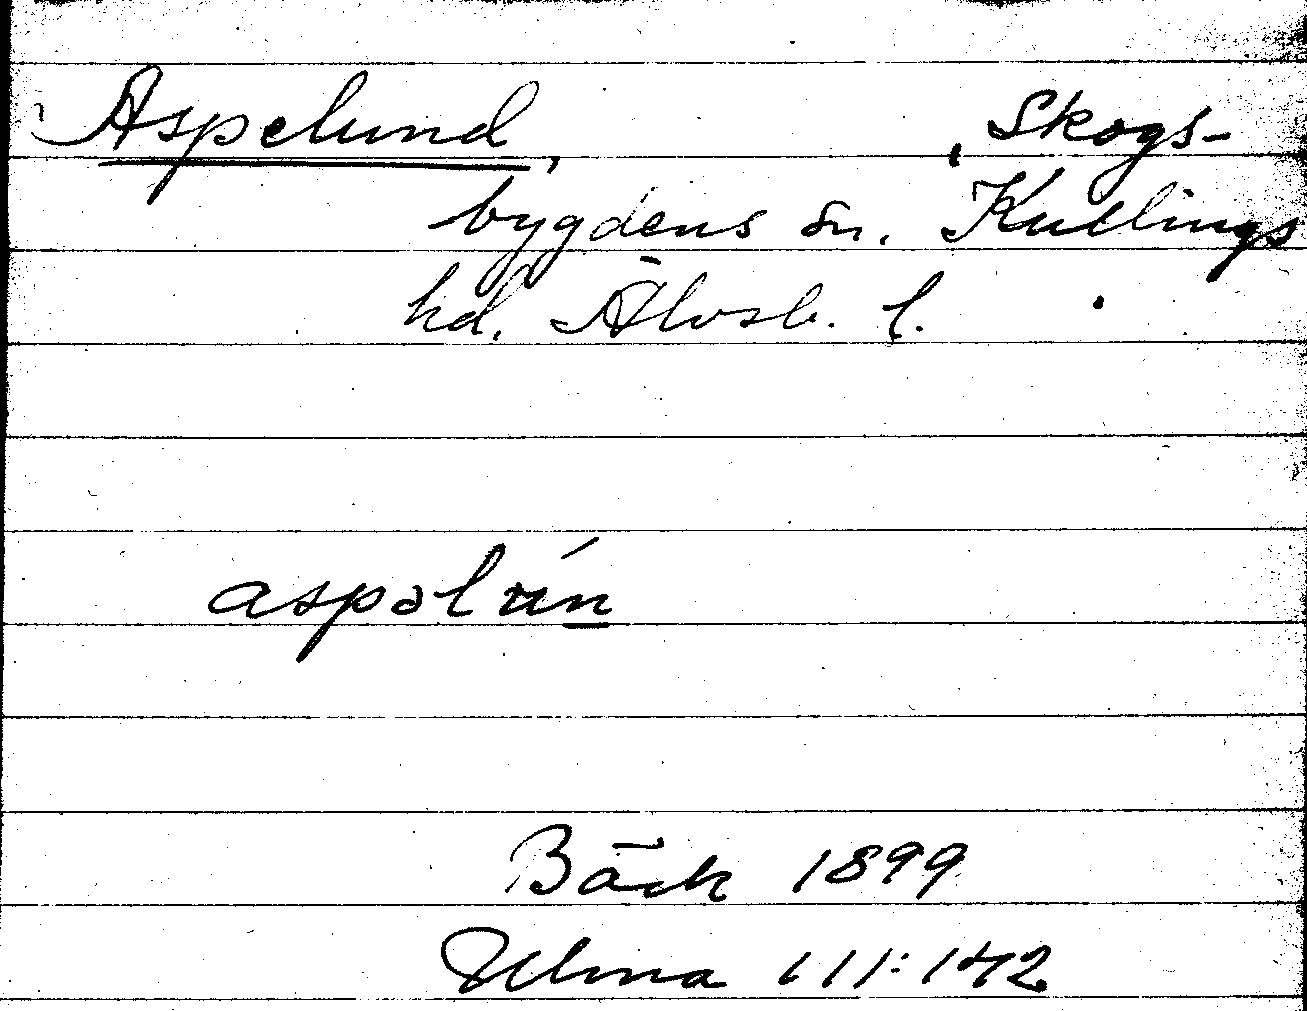 Aspelund, , Skogs-
bygdens sn. Kullings
hd. Älvsb. l.
aspəlún
Bäck 1899
Ulma 111:142